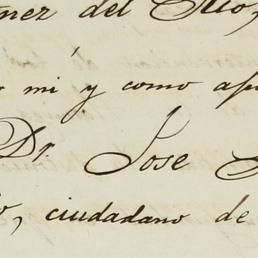 nez del Rio,
mi y como apo
Dr. Jose
o, ciudadano de